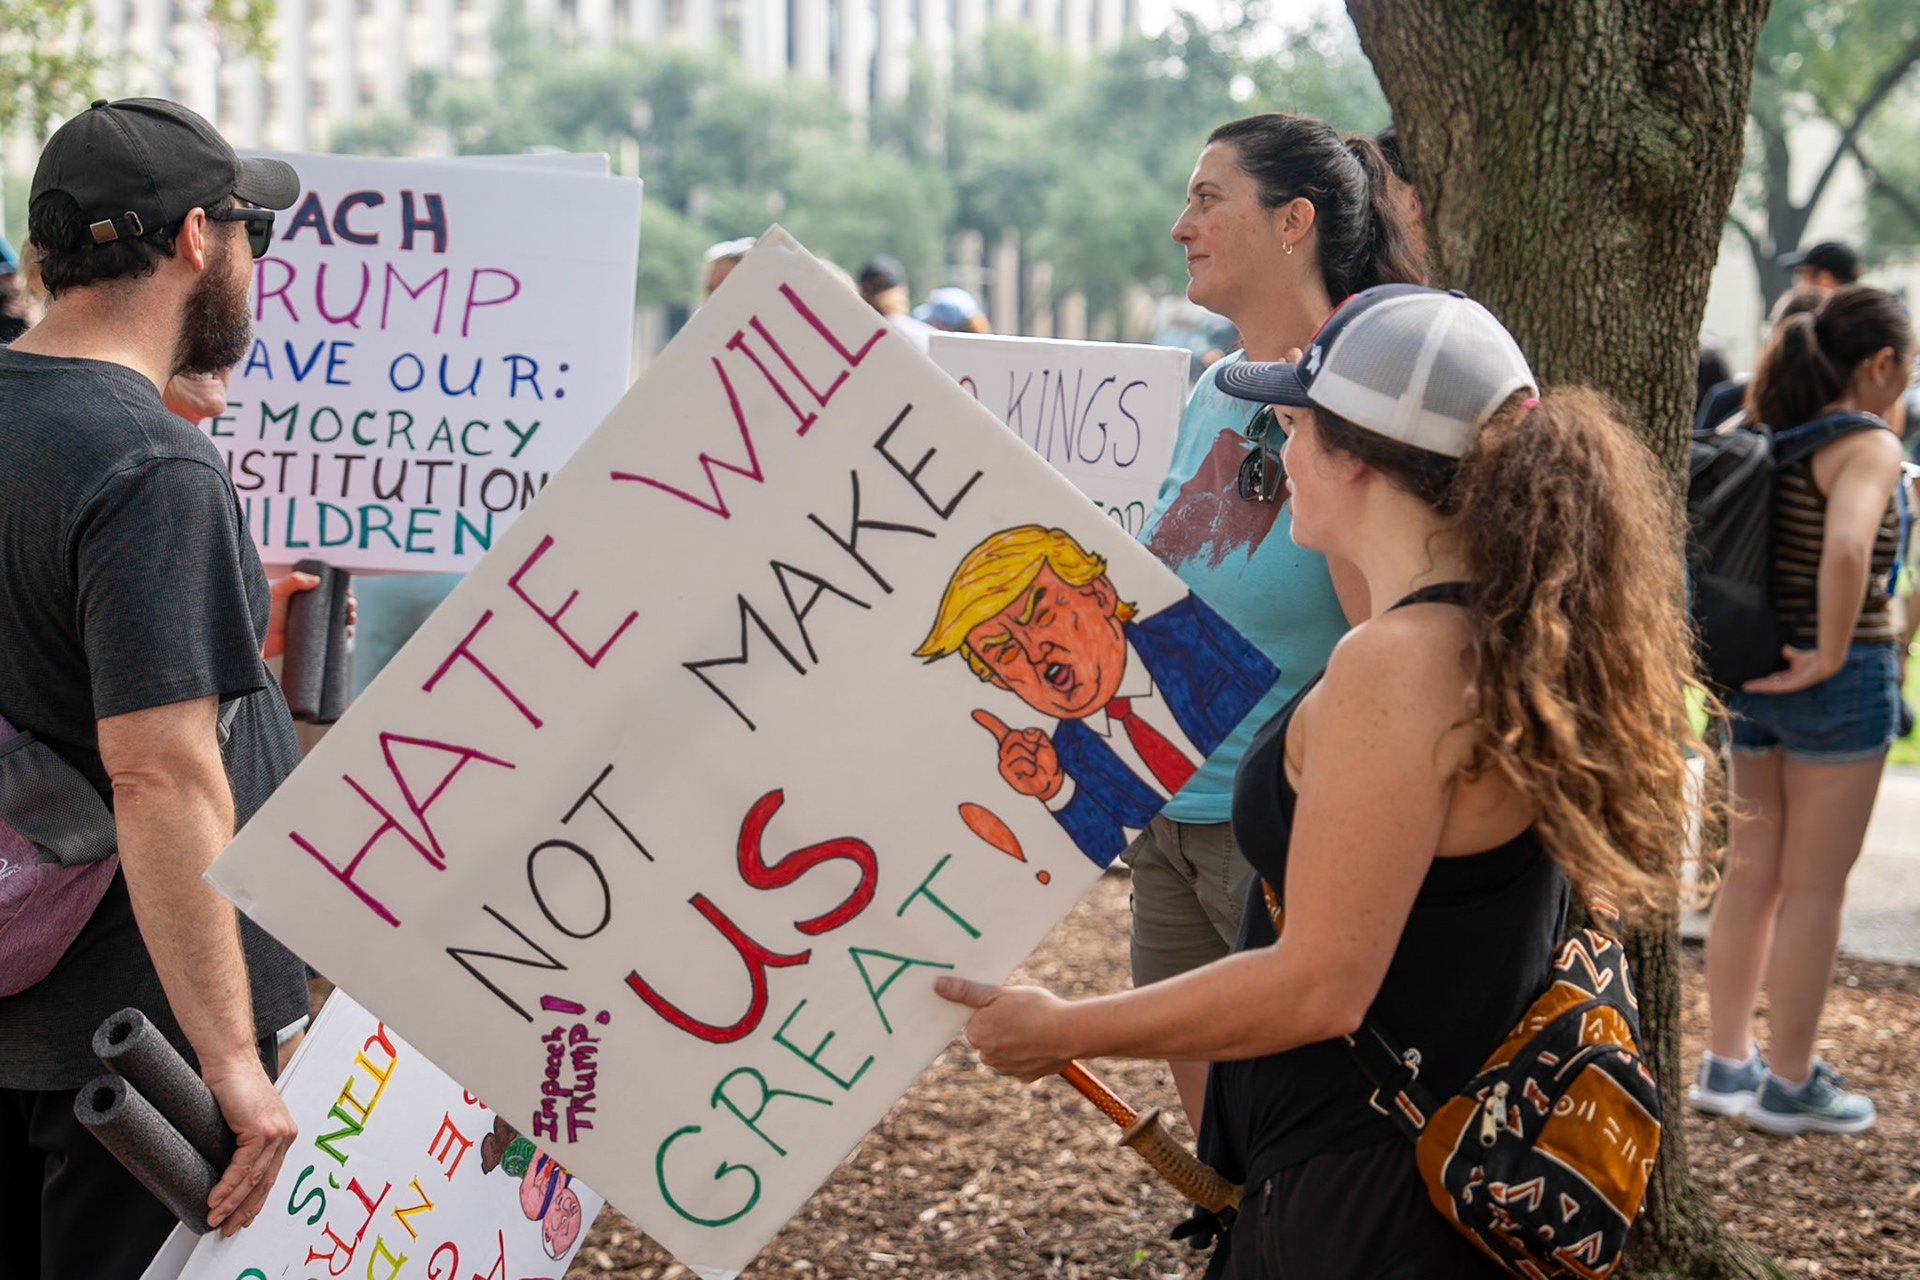 ACH
RUMP
AVE OUR:
EMOCRACY
STITUTION
ILDREN
KINGS
HATE WILL
NOT MAKE
US
GREAT!
Impeach
TRUMP!